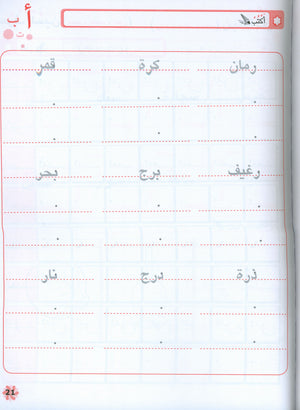 أكتب
أ ب ت
رمان كرة قمر
رغيف برج بحر
ذرة درج نار
21